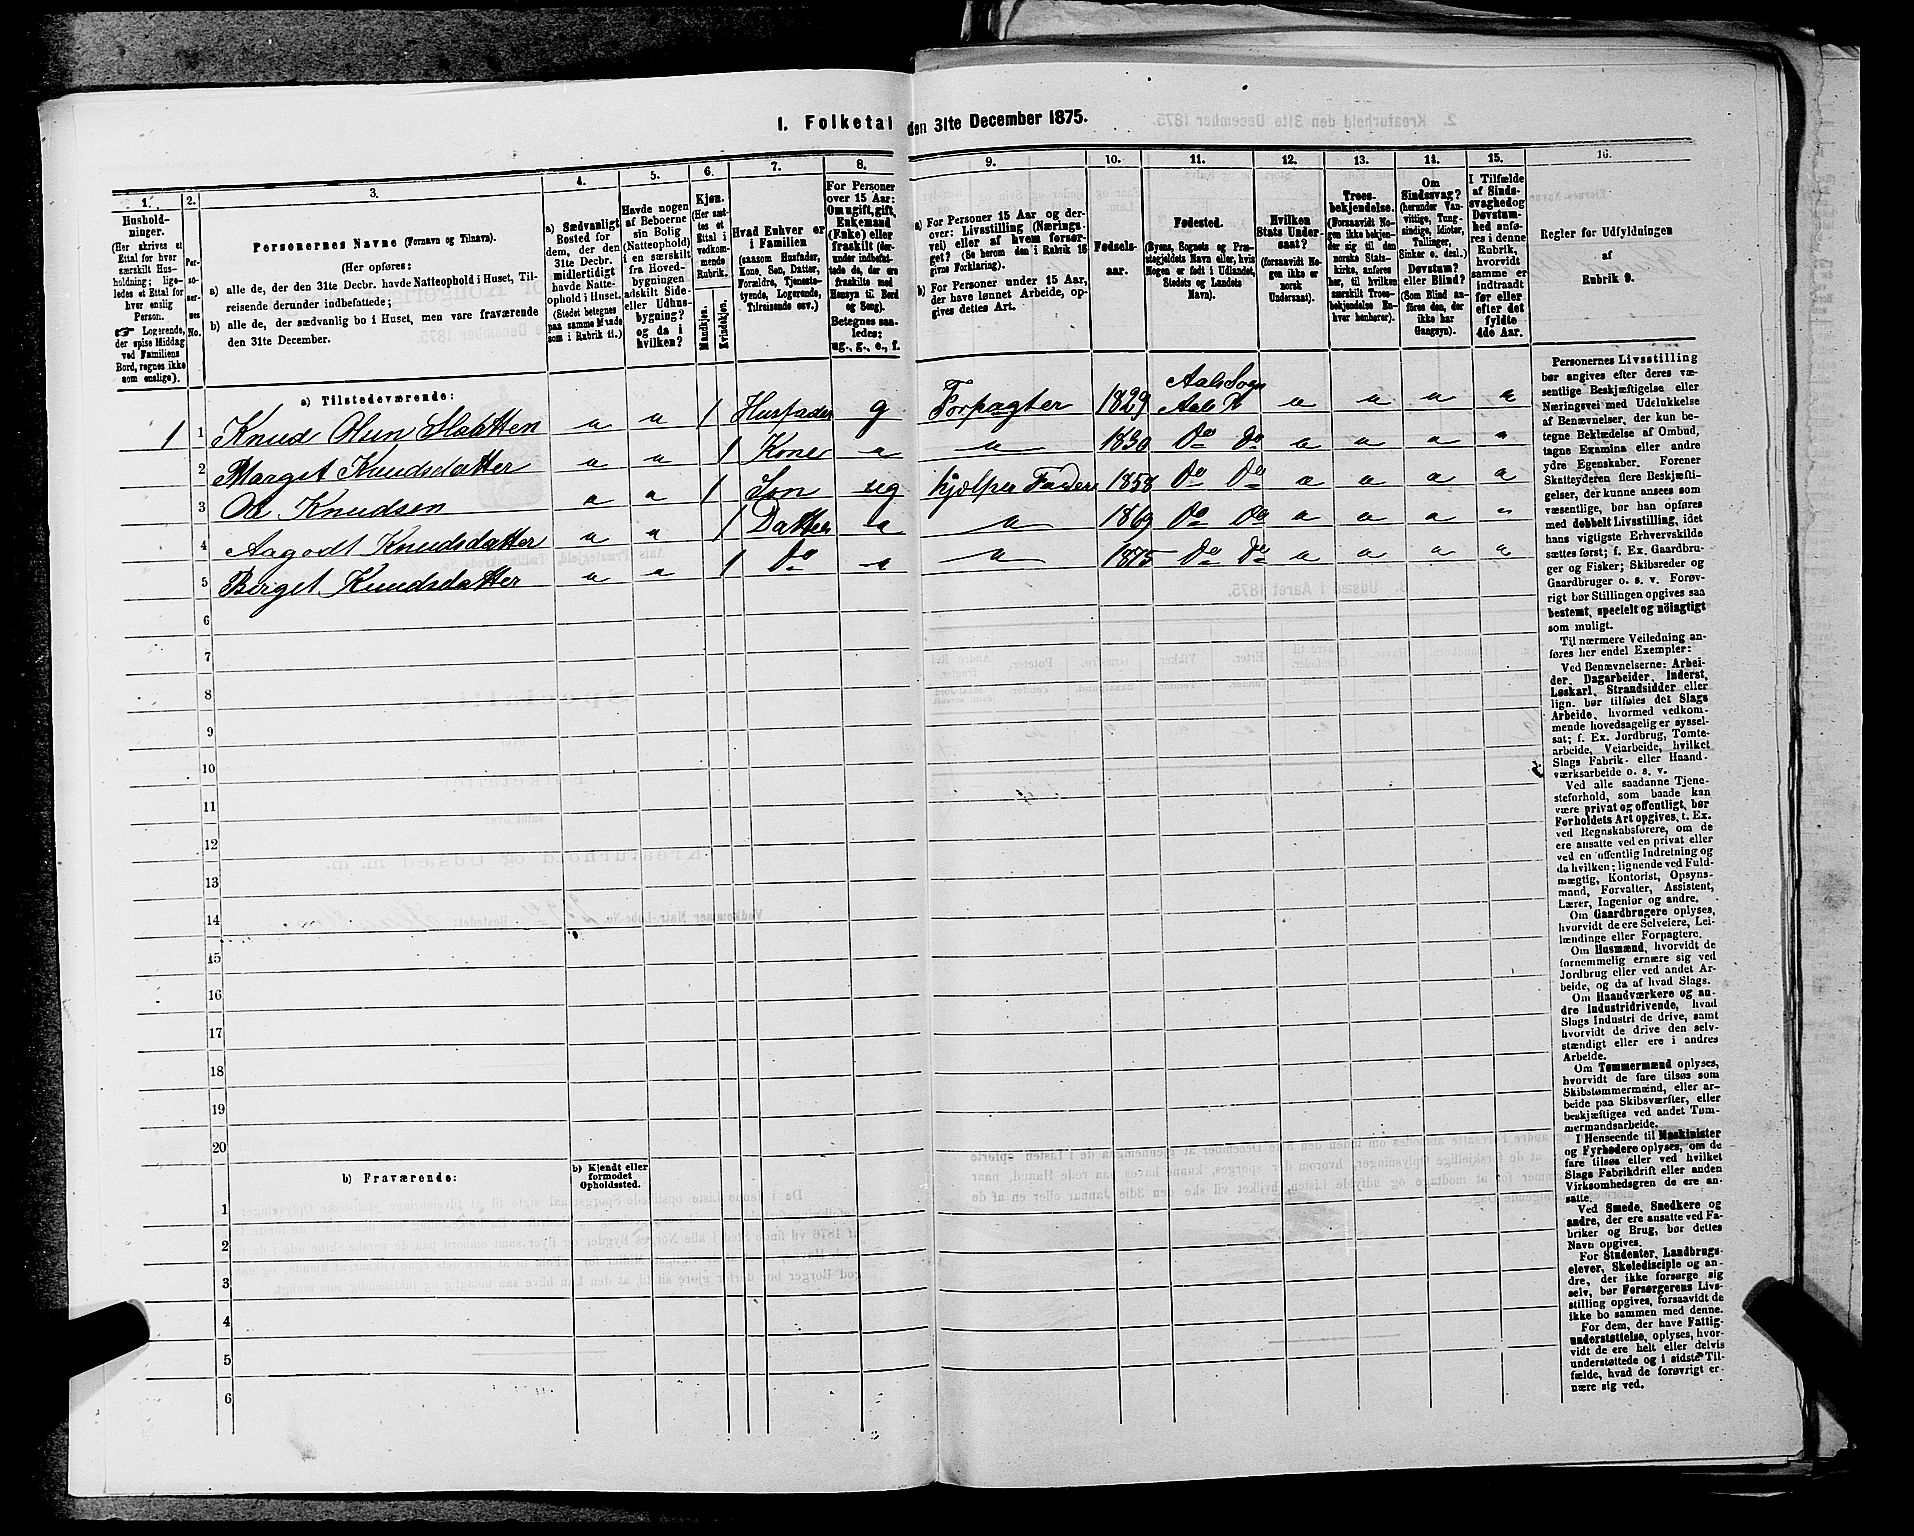 I. Folketal den 31te December 1875.
1. 2. 3. 4. 5. 6. 7. 8. 9. 10. 11. 12. 13. 14. 15. 16.
Husholdninger.
(Her skrives et
Ettal for hver
særskilt Husholdning;
ligeledes et Ettal for
hver enslig
Person.
☞ Logerende,
der spise Middag
ved Familiens
Bord, regnes ikke
som enslige).
Personernes No.
Personernes Navne (Fornavn og Tilnavn).
(Her opføres:
a) alle de, der den 31te Decbr. havde Natteophold i Huset, Tilreisende derunder indbefattede;
b) alle de, der sædvanlig bo i Huset, men vare fraværende
den 31te December.
a) Sædvanligt
Bosted for
dem, der den
31te Decbr.
midlertidigt
havde Natteophold i Huset.
(Stedet betegnes
paa samme Maade
som i Rubrik 11.)
Havde nogen
af Beboerne
sin Bolig
(Natteophold)
i en særskilt
fra Hovedbygningen
adskilt Side-
eller Udhusbygning?
og da i
hvilken?
Kjøn.
(Her sættes et
Ettal i vedkommende
Rubrik.
Mandkjøn.
Kvindekjøn.
Hvad Enhver er
i Familien
(saasom Husfader,
Kone, Søn, Datter,
Forældre, Tjenestetyende, Logerende,
Tilreisende osv.)
For Personer
over 15 Aar:
Om ugift, gift,
Enkemand
(Enke) eller
fraskilt (derunder indbefattede de, der ere
fraskilte med
Hensyn til Bord
og Seng).
Betegnes saaledes:
ug., g., e., f.
a) For Personer 15 Aar og derover: Livsstilling (Næringsvei) eller af hvem forsørget? (Se herom den i Rubrik 16
givne Forklaring).
b) For Personer under 15 Aar,
der have lønnet Arbeide, opgives dettes Art.
Fødselsaar.
Fødested.
(Byens, Sognets og Præstegjeldets Navn eller, hvis
Nogen er født i Udlandet,
Stedets og Landets
Navn).
Hvilken
Stats Undersaat?
(forsaavidt Nogen ikke er
norsk
Undersaat).
Troesbekjendelse.
(Forsaavidt Nogen ikke bekjender sig til den
norske Statskirke, anføres
her, til hvilken
særskilt Troesbekjendelse Enhver henhører).
Om
Sindssvag?
(herunder Vanvittige, Tungsindige, Idioter,
Tullinger,
Sinker o. desl.)
Døvstum?
eller Blind?
(Som Blind anføres den, der
ikke har
Gangsyn).
I Tilfælde
af Sindssvaghed og
Døvstumhed anføres i denne
Rubrik,
hvorvidt
samme er
indtraadt
før eller
efter det
fyldte
4de Aar.
Regler for Udfyldningen
af
Rubrik 9.
a) Tilstedeværende:
1 1 Knud Olsen Slaatten " " 1 Husfader g Forpagter 1829 Aals Sogn Aals P " " " "
2 Marget Knudsdatter " " 1 Kone " " 1830 Do Do " " " "
3 Ole Knudsen " " 1 Søn ug hjælper Fader 1858 Do Do " " " "
4 Aagodt Knudsdatter " " 1 Datter " " 1869 Do Do " " " "
5 Birget Knudsdatter " " 1 Do " " 1875 Do Do " " " "
6
7
8
9
10
11
12
13
14
15
16
17
18
19
20
b) Fraværende:
b) Kjendt eller
formodet
Opholdssted.
1
2
3
4
5
6
Personernes Livsstilling
bør angives efter deres væsentlige Beskjæftigelse eller
Næringsvei med Udelukkelse
af Benævnelser, der kun betegne Beklædelse af Ombud,
tagne Examina eller andre
ydre Egenskaber. Forener
Skatteyderen flere Beskjæftigelser, der kunne ansees som
væsentlige, bør han opføres
med dobbelt Livsstilling, idet
hans vigtigste Erhvervskilde
sættes først; f. Ex. Gaardbruger og Fisker; Skibsreder og
Gaardbruger o. s. v. Forøvrigt bør Stillingen opgives saa
bestemt, specielt og nöiagtigt
som muligt.
Til nærmere Veiledning anføres her endel Exempler:
Ved Benævnelserne: Arbeider, Dagarbeider, Inderst,
Løskarl, Strandsidder eller
lign. bør tilføies det Slags
Arbeide, hvormed vedkommende hovedsagelig er sysselsat; f. Ex. Jordbrug, Tomtearbeide, Veiarbeide, hvilket
Slags Fabrik- eller Haandværksarbeide o. s. v.
Ved alle saadanne Tjenesteforhold, som baade kan
være privat og offentligt, bør
Forholdets Art opgives, t. Ex.
ved Regnskabsførere, om de
ere ansatte ved en privat eller
ved en offentlig Indretning og
da hvilken; lignende ved Fuldmægtig, Kontorist, Opsynsmand, Forvalter, Assistent,
Lærer, Ingeniør og andre.
Om Gaardbrugere oplyses,
hvorvidt de ere Selveiere, Leilændinge eller Forpagtere.
Om Husmænd, hvorvidt de
fornemmelig ernære sig ved
Jordbrug eller ved andet Arbeide, og da af hvad Slags.
Om Haandværkere og andre Industridrivende, hvad
Slags Industri de drive, samt
hvorvidt de drive den selvstændigt eller ere i andres
Arbeide.
Om Tømmermænd oplyses,
hvorvidt de fare tilsøs som
Skibstømmermænd, eller arbeide paa Skibsværfter, eller
beskjæftiges ved andet Tømmermandsarbeide.
I Henseende til Maskinister
og Fyrbødere oplyses, om de
fare tilsøs eller ved hvilket
Slags Fabrikdrift eller anden
Virksomhedsgren de ere ansatte.
Ved Smede, Snedkere og
andre, der ere ansatte ved Fabriker og Brug, bør dettes
Navn opgives.
For Studenter, Landbrugselever, Skoledisciple og andre, der ikke forsørge sig
selv, bør Forsørgerens Livsstilling opgives, forsaavidt de
ikke bo sammen med denne.
For dem, der have Fattigunderstøttelse, oplyses, hvorvidt de ere helt eller delvis
understøttede og i sidste Tilfælde, hvad de forøvrigt ernære sig ved.